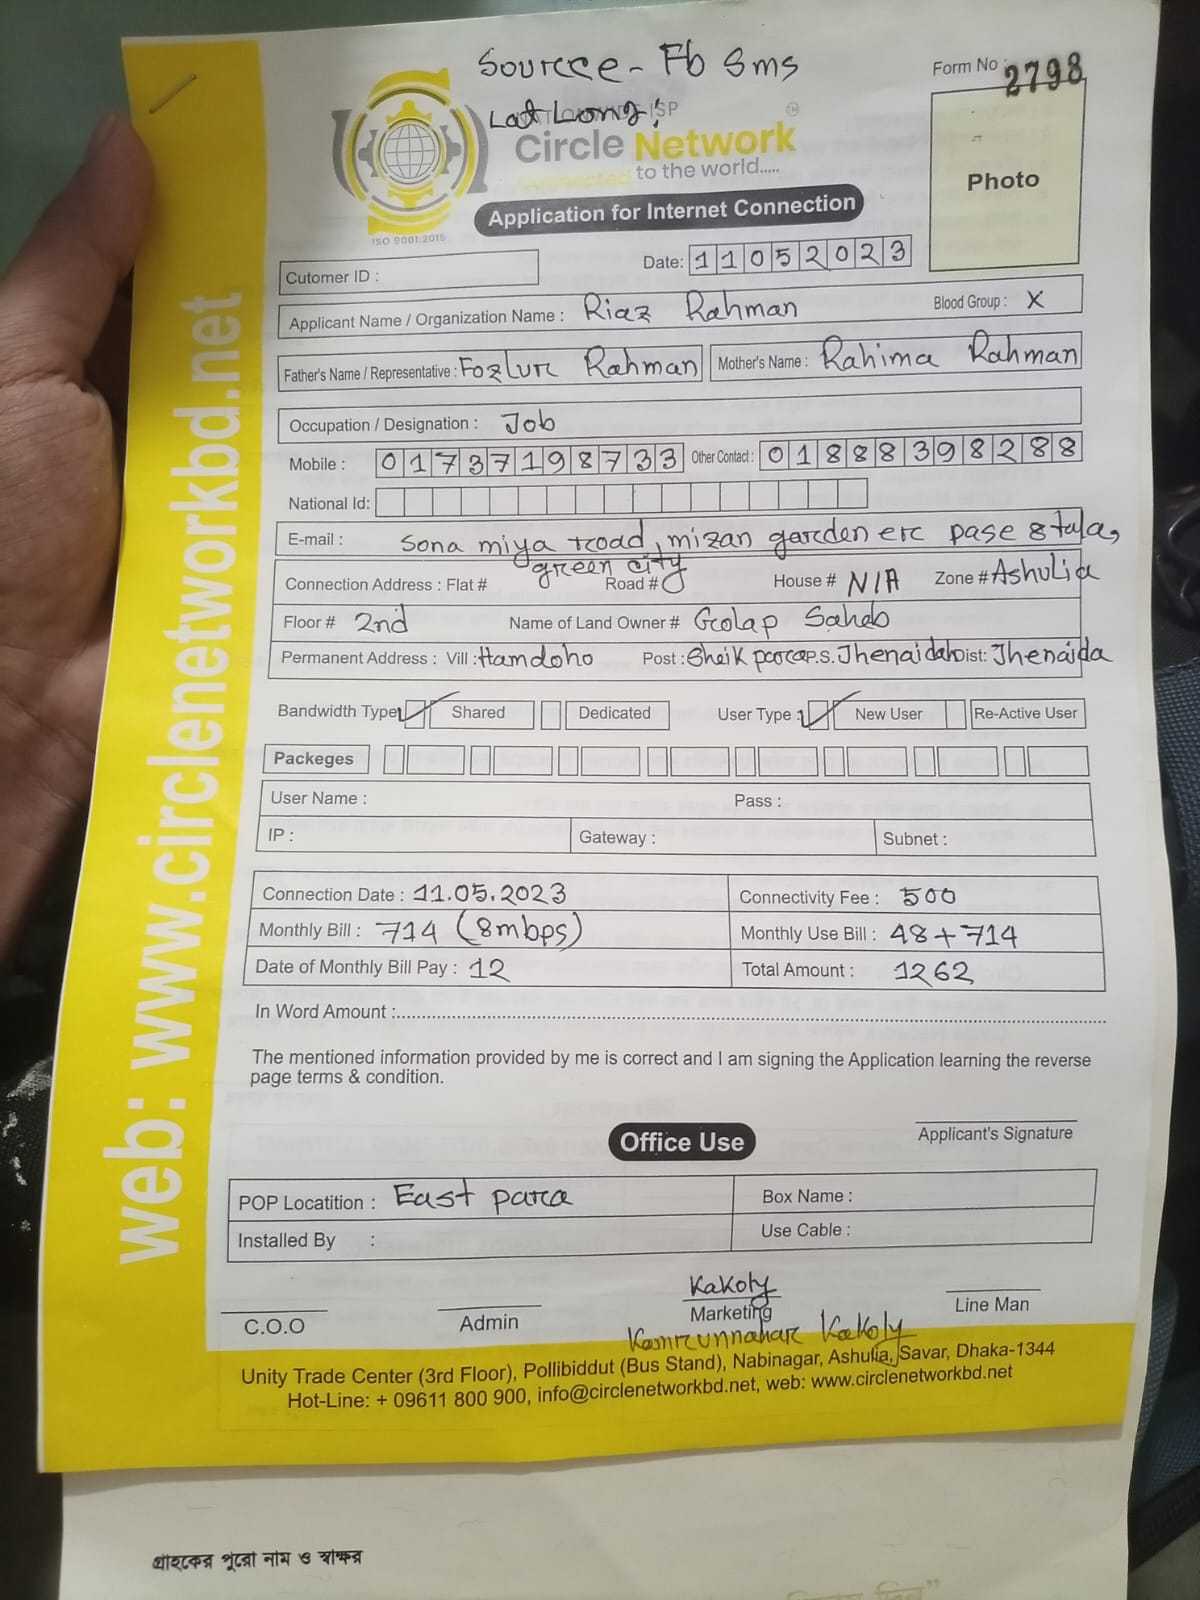 Source - Fb Sms
Form No : 2798
Lat Long: ISP
Circle Network
Connected to the world.....
Photo
ISO 9001:2015
Application for Internet Connection
Cutomer ID :
Date: 11052023
Applicant Name / Organization Name : Riaz Rahman Blood Group : X
Father's Name / Representative : Fozlur Rahman Mother's Name : Rahima Rahman
Occupation / Designation : Job
Mobile : 01737198733 Other Contact : 01888398288
National Id:
E-mail : Sona miya road, mizan garden er pase 8 tala,
green city
Connection Address : Flat # Road # House # N/A Zone # Ashulia
Floor # 2nd Name of Land Owner # Golap Saheb
Permanent Address : Vill : Hamdoho Post : Sheik para P.S. Jhenaidah Dist: Jhenaida
Bandwidth Type Shared Dedicated User Type : New User Re-Active User
Packeges
User Name : Pass :
IP : Gateway : Subnet :
Connection Date : 11.05.2023 Connectivity Fee : 500
Monthly Bill : 714 (8mbps) Monthly Use Bill : 48+714
Date of Monthly Bill Pay : 12 Total Amount : 1262
In Word Amount :
The mentioned information provided by me is correct and I am signing the Application learning the reverse
page terms & condition.
Applicant's Signature
Office Use
POP Locatition : East para Box Name :
Installed By : Use Cable :
Kakoly
C.O.O Admin Marketing Line Man
Kamrunnahar Kakoly
Unity Trade Center (3rd Floor), Pollibiddut (Bus Stand), Nabinagar, Ashulia, Savar, Dhaka-1344
Hot-Line: + 09611 800 900, info@circlenetworkbd.net, web: www.circlenetworkbd.net
web: www.circlenetworkbd.net
গ্রাহকের পুরো নাম ও স্বাক্ষর